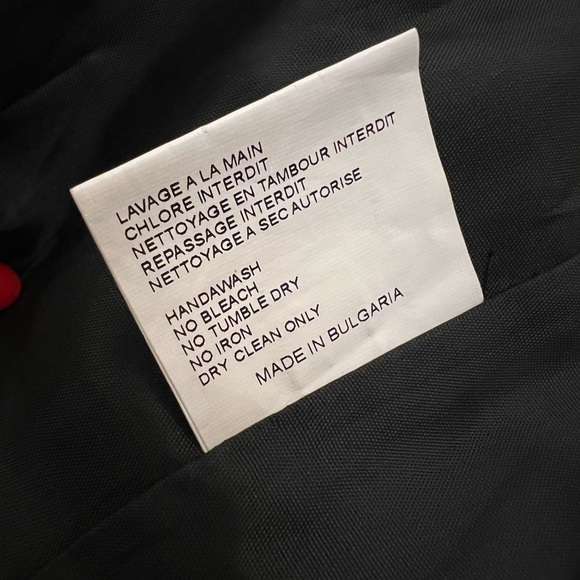 LAVAGE A LA MAIN
CHLORE INTERDIT
NETTOYAGE EN TAMBOUR INTERDIT
REPASSAGE INTERDIT
NETTOYAGE A SEC AUTORISE
HANDAWASH
NO BLEACH
NO TUMBLE DRY
NO IRON
DRY CLEAN ONLY
MADE IN BULGARIA